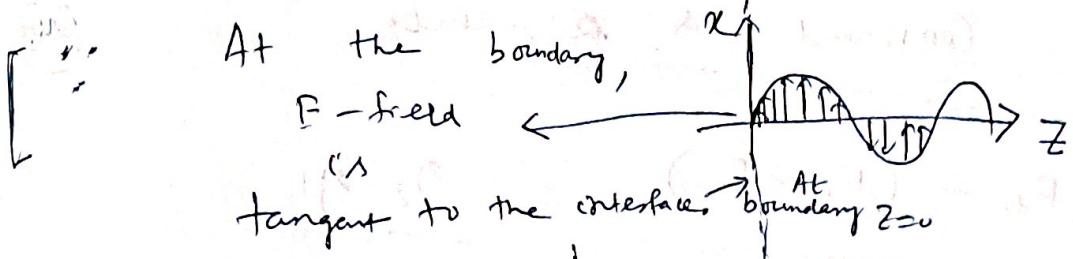 [ ∵ At the boundary,
E - field
is
tangent to the interface.
x
Z
At
boundary z=0